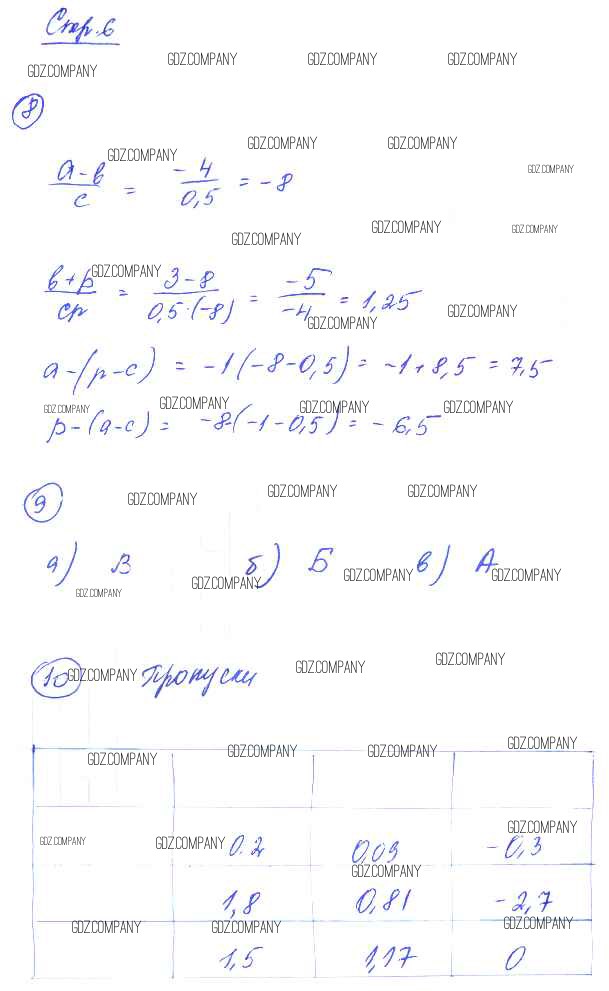 Стр. 6
GDZ.COMPANY GDZ.COMPANY GDZ.COMPANY GDZ.COMPANY
8
GDZ.COMPANY GDZ.COMPANY GDZ.COMPANY GDZ.COMPANY
(a-b)/c = -4/0,5 = -8
GDZ.COMPANY GDZ.COMPANY GDZ.COMPANY
GDZ.COMPANY
(b+p)/cp = (3-8)/(0,5·(-8)) = -5/-4 = 1,25
GDZ.COMPANY GDZ.COMPANY
a-(p-c) = -1(-8-0,5) = -1+8,5 = 7,5
GDZ.COMPANY GDZ.COMPANY GDZ.COMPANY GDZ.COMPANY
p-(a-c) = -8-(-1-0,5) = -6,5
9
GDZ.COMPANY GDZ.COMPANY GDZ.COMPANY
а) В б) Б в) А
GDZ.COMPANY GDZ.COMPANY GDZ.COMPANY GDZ.COMPANY
10 Пропуски
GDZ.COMPANY GDZ.COMPANY GDZ.COMPANY
GDZ.COMPANY GDZ.COMPANY GDZ.COMPANY GDZ.COMPANY
GDZ.COMPANY GDZ.COMPANY GDZ.COMPANY
0.2 0,09 -0,3
GDZ.COMPANY
1,8 0,81 -2,7
GDZ.COMPANY GDZ.COMPANY GDZ.COMPANY
1,5 1,17 0